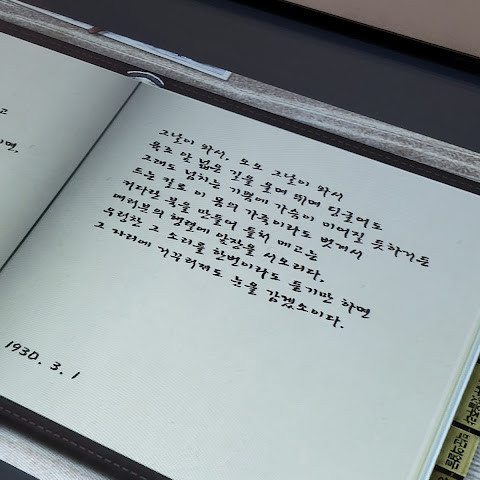 고
면,
1930. 3. 1
그날이 와서, 오오 그날이 와서
육조 앞 넓은 길을 울며 뛰며 딩굴어도
그래도 넘치는 기쁨에 가슴이 미어질 듯하거든
드는 칼로 이 몸의 가죽이라도 벗겨서
커다란 북을 만들어 들쳐 메고는
여러분의 행렬에 앞장을 서오리다.
우렁찬 그 소리를 한번이라도 듣기만 하면
그 자리에 거꾸러져도 눈을 감겠소이다.